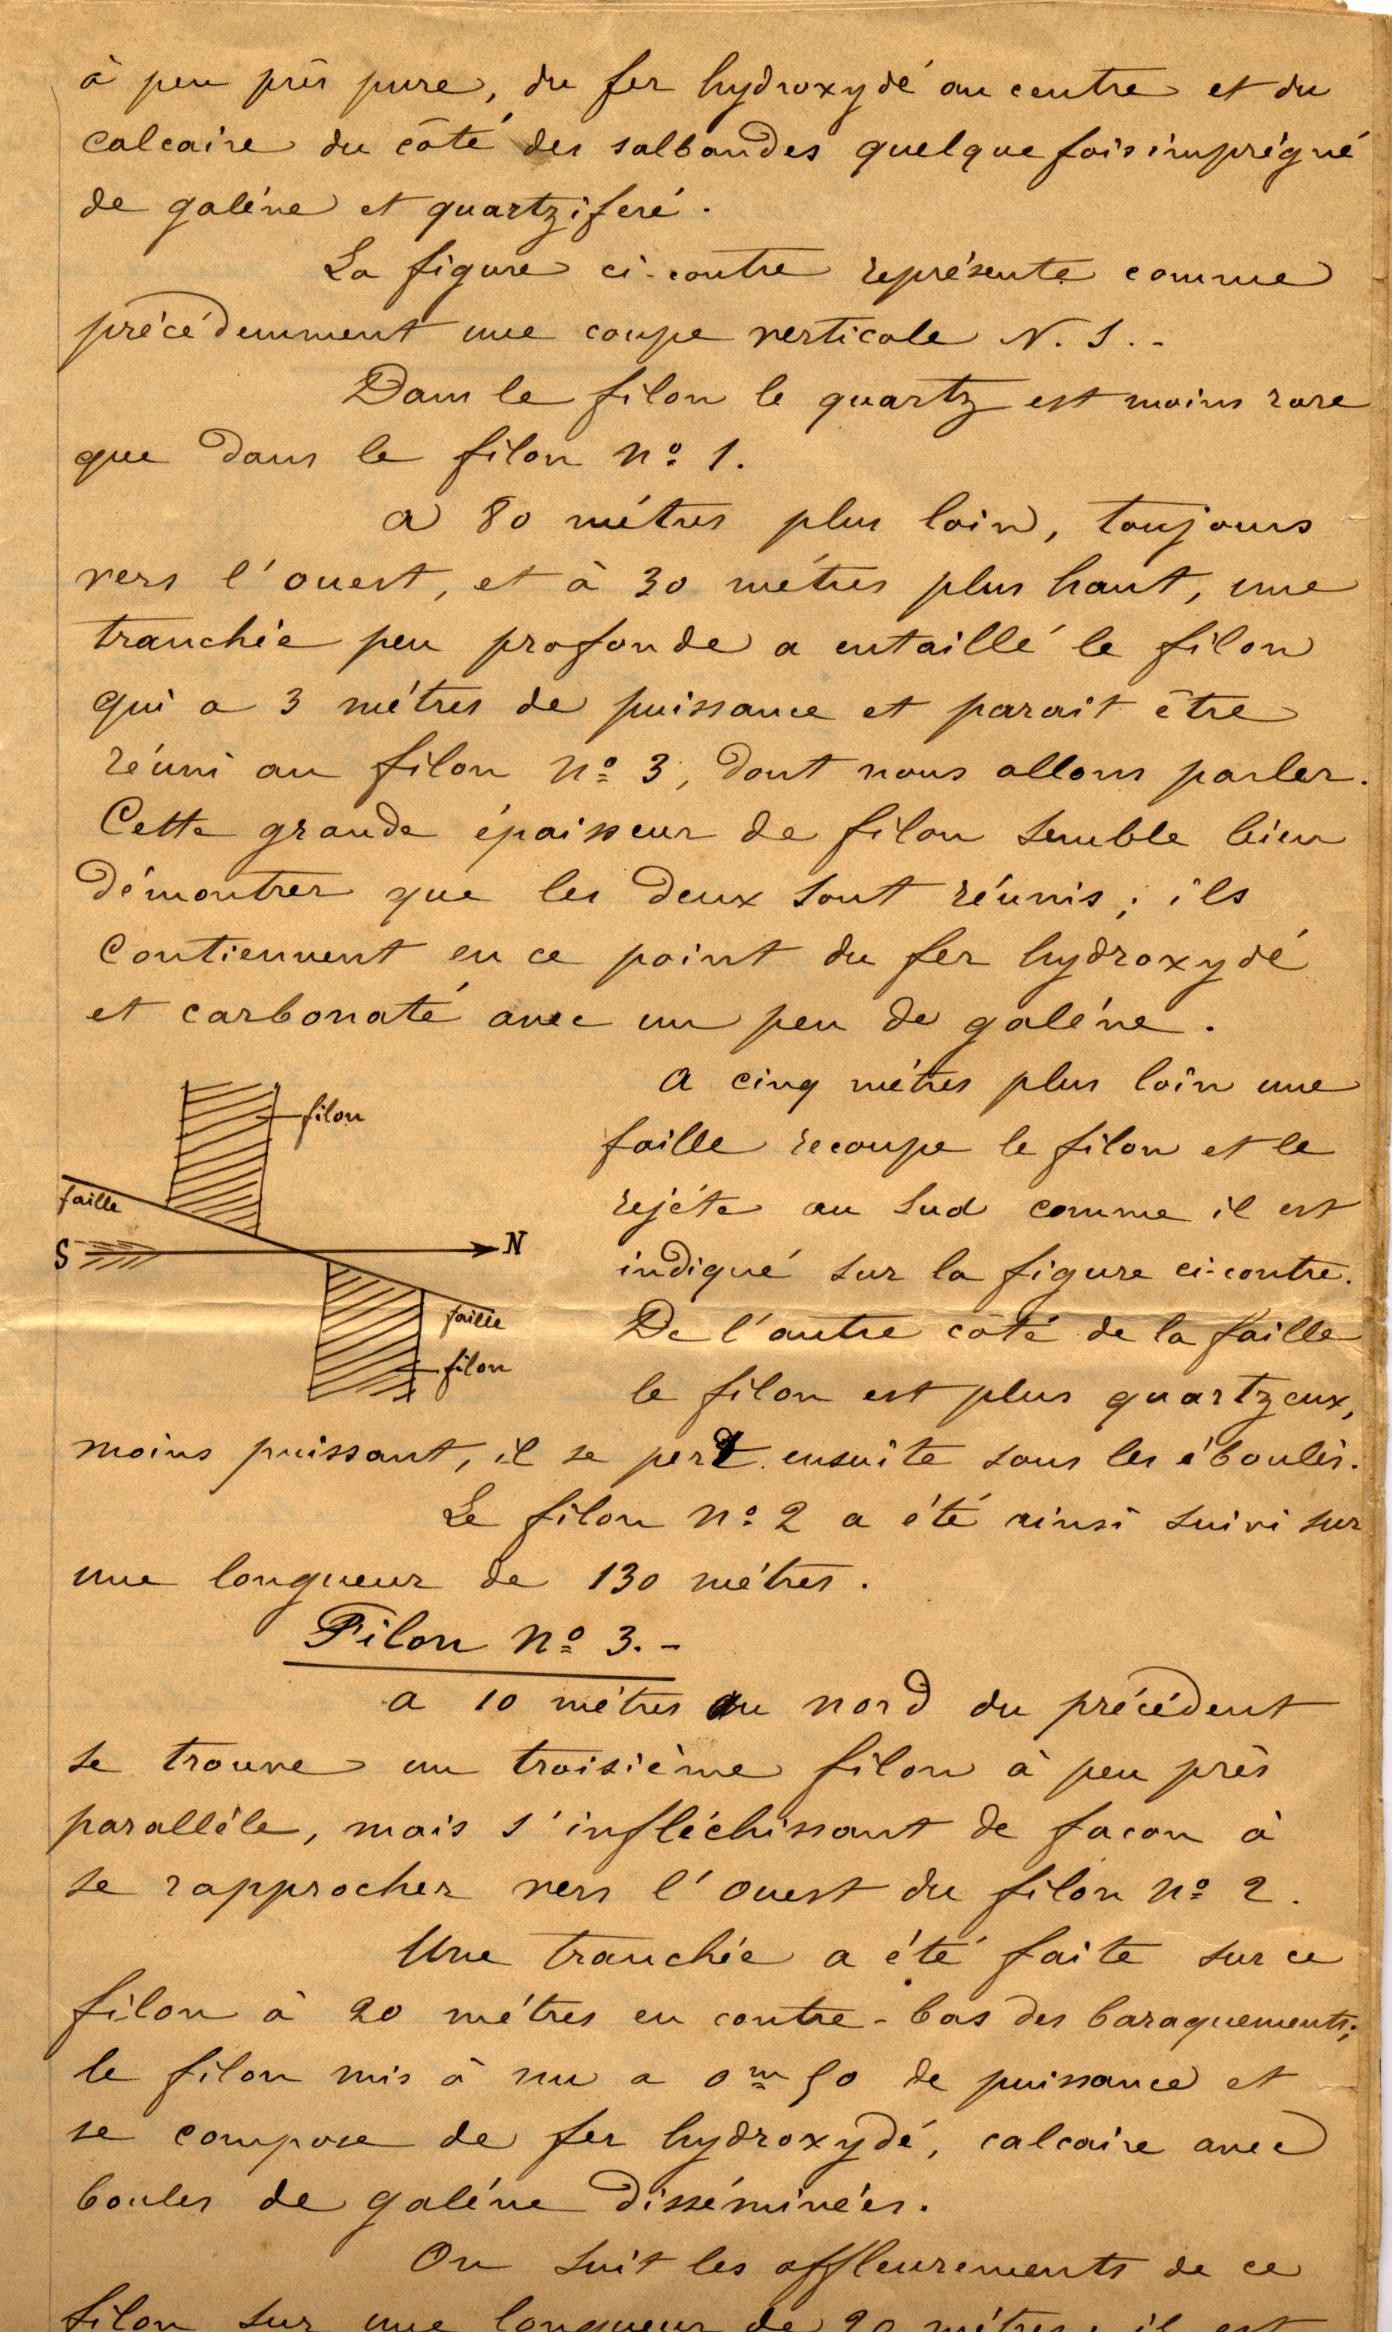 à peu près pure, du fer hydroxydé au centre et du
calcaire du côté des salbandes quelque fois imprégné
de galéne et quartziferé.
La figure ci-contre représente comme
précédemment une coupe verticale N. S. -
Dans le filon le quartz est moins rare
que dans le filon nº 1.
a 80 métres plus loin, toujours
vers l'ouest, et à 30 métres plus haut, une
tranchée peu profonde a entaillé le filon
qui a 3 métres de puissance et parait être
réuni au filon Nº 3, dont nous allons parler.
Cette grande épaisseur de filon semble bien
démontrer que les deux sont réunis; ils
contiennent en ce point du fer hydroxydé
et carbonaté avec un peu de galéne.
filon
faille
S
N
faille
filon
a cinq métres plus loin une
faille recoupe le filon et le
rejéte au sud comme il est
indiqué sur la figure ci-contre.
De l'autre côté de la faille
le filon est plus quartzeux,
moins puissant, il se perd ensuite sous les éboulis.
Le filon Nº 2 a été ainsi suivi sur
une longueur de 130 métres.
Filon Nº 3. -
a 10 métres au nord du précédent
se trouve un troisième filon à peu près
paralléle, mais s'infléchissant de facon à
se rapprocher vers l'ouest du filon Nº 2.
Une tranchée a été faite sur ce
filon à 20 métres en contre-bas des baraquements;
le filon mis à nu a 0m50 de puissance et
se compose de fer hydroxydé, calcaire avec
boules de galéne disséminées.
On suit les affleurements de ce
filon sur une longueur de 20 métres, il est